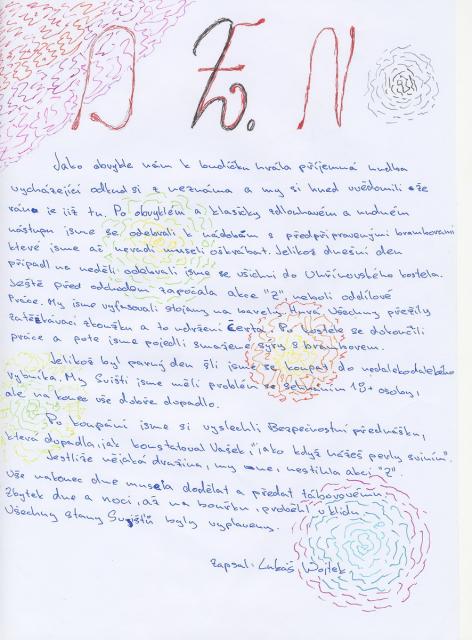 D Ž. N
Jako obvykle nám k budíčku hrála příjemná hudba
vycházející odkud si z neznáma a my si hned uvědomili že
ráno je již tu. Po obvyklém a klasicky zdlouhavém a nudném
nástupu jsme se odebrali k nádobám s předpřipravenými bramborami
které jsme až nevadí museli oškrábat. Jelikož dnešní den
připadl na neděli odebrali jsme se všichni do Uhřínovského kostela.
Ještě před odchodem započala akce "Z" neboli oddílové
práce. My jsme vyfasovali stojany na bavely. Hurá všechny přežily
zatěžkávací zkoušku a to udržení Čerta. Po kostele se dokončili
práce a pote jsme pojedli smažené sýry s bramborem.
Jelikož byl parný den šli jsme se koupat do nedalekodalekého
rybníka. My Svišti jsme měli problém se sehnáním 18+ osoby,
ale na konec vše dobře dopadlo.
Po koupání jsme si vyslechli Bezpečnostní přednášku,
která dopadla, jak konstatoval Vašek, "jako když házeš perly sviním".
Jestliže nějaká družina, my ne, nestihla akci "Z"
vše nakonec dne musela dodělat a předat táborovému.
Zbytek dne a noci, až na bouřku, proběhl v klidu.
Všechny stany Svišťů byly vyplaveny.
zapsal: Lukáš Wojtek